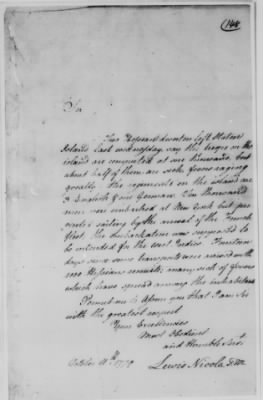 148
Sir
Four Hessian deserters left Staten
Island last wednesday say the troops on the
island are computed at one thousand, but
about half of them are sick, fevers raging
greatly. The regiments on the island are
3 English & one German. Ten thousand
men were embarked at New York but pre
vented sailing by the arrival of the French
fleet. The embarkation was supposed to
be intended for the west Indies. Fourteen
days since some transports were arrived with
1000 Hessian recruits many sick of fevers
which have spread among the inhabitants
Permit me to assure you that I am Sir
with the greatest respect
Your Excellencies
Most Obedient
and Humble Servt.
October 11th. 1779
Lewis Nicola